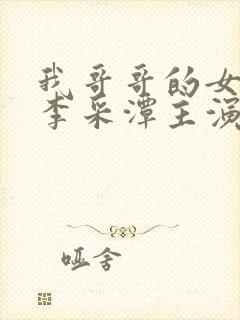 我哥哥的女
李采潭主演
哑舍